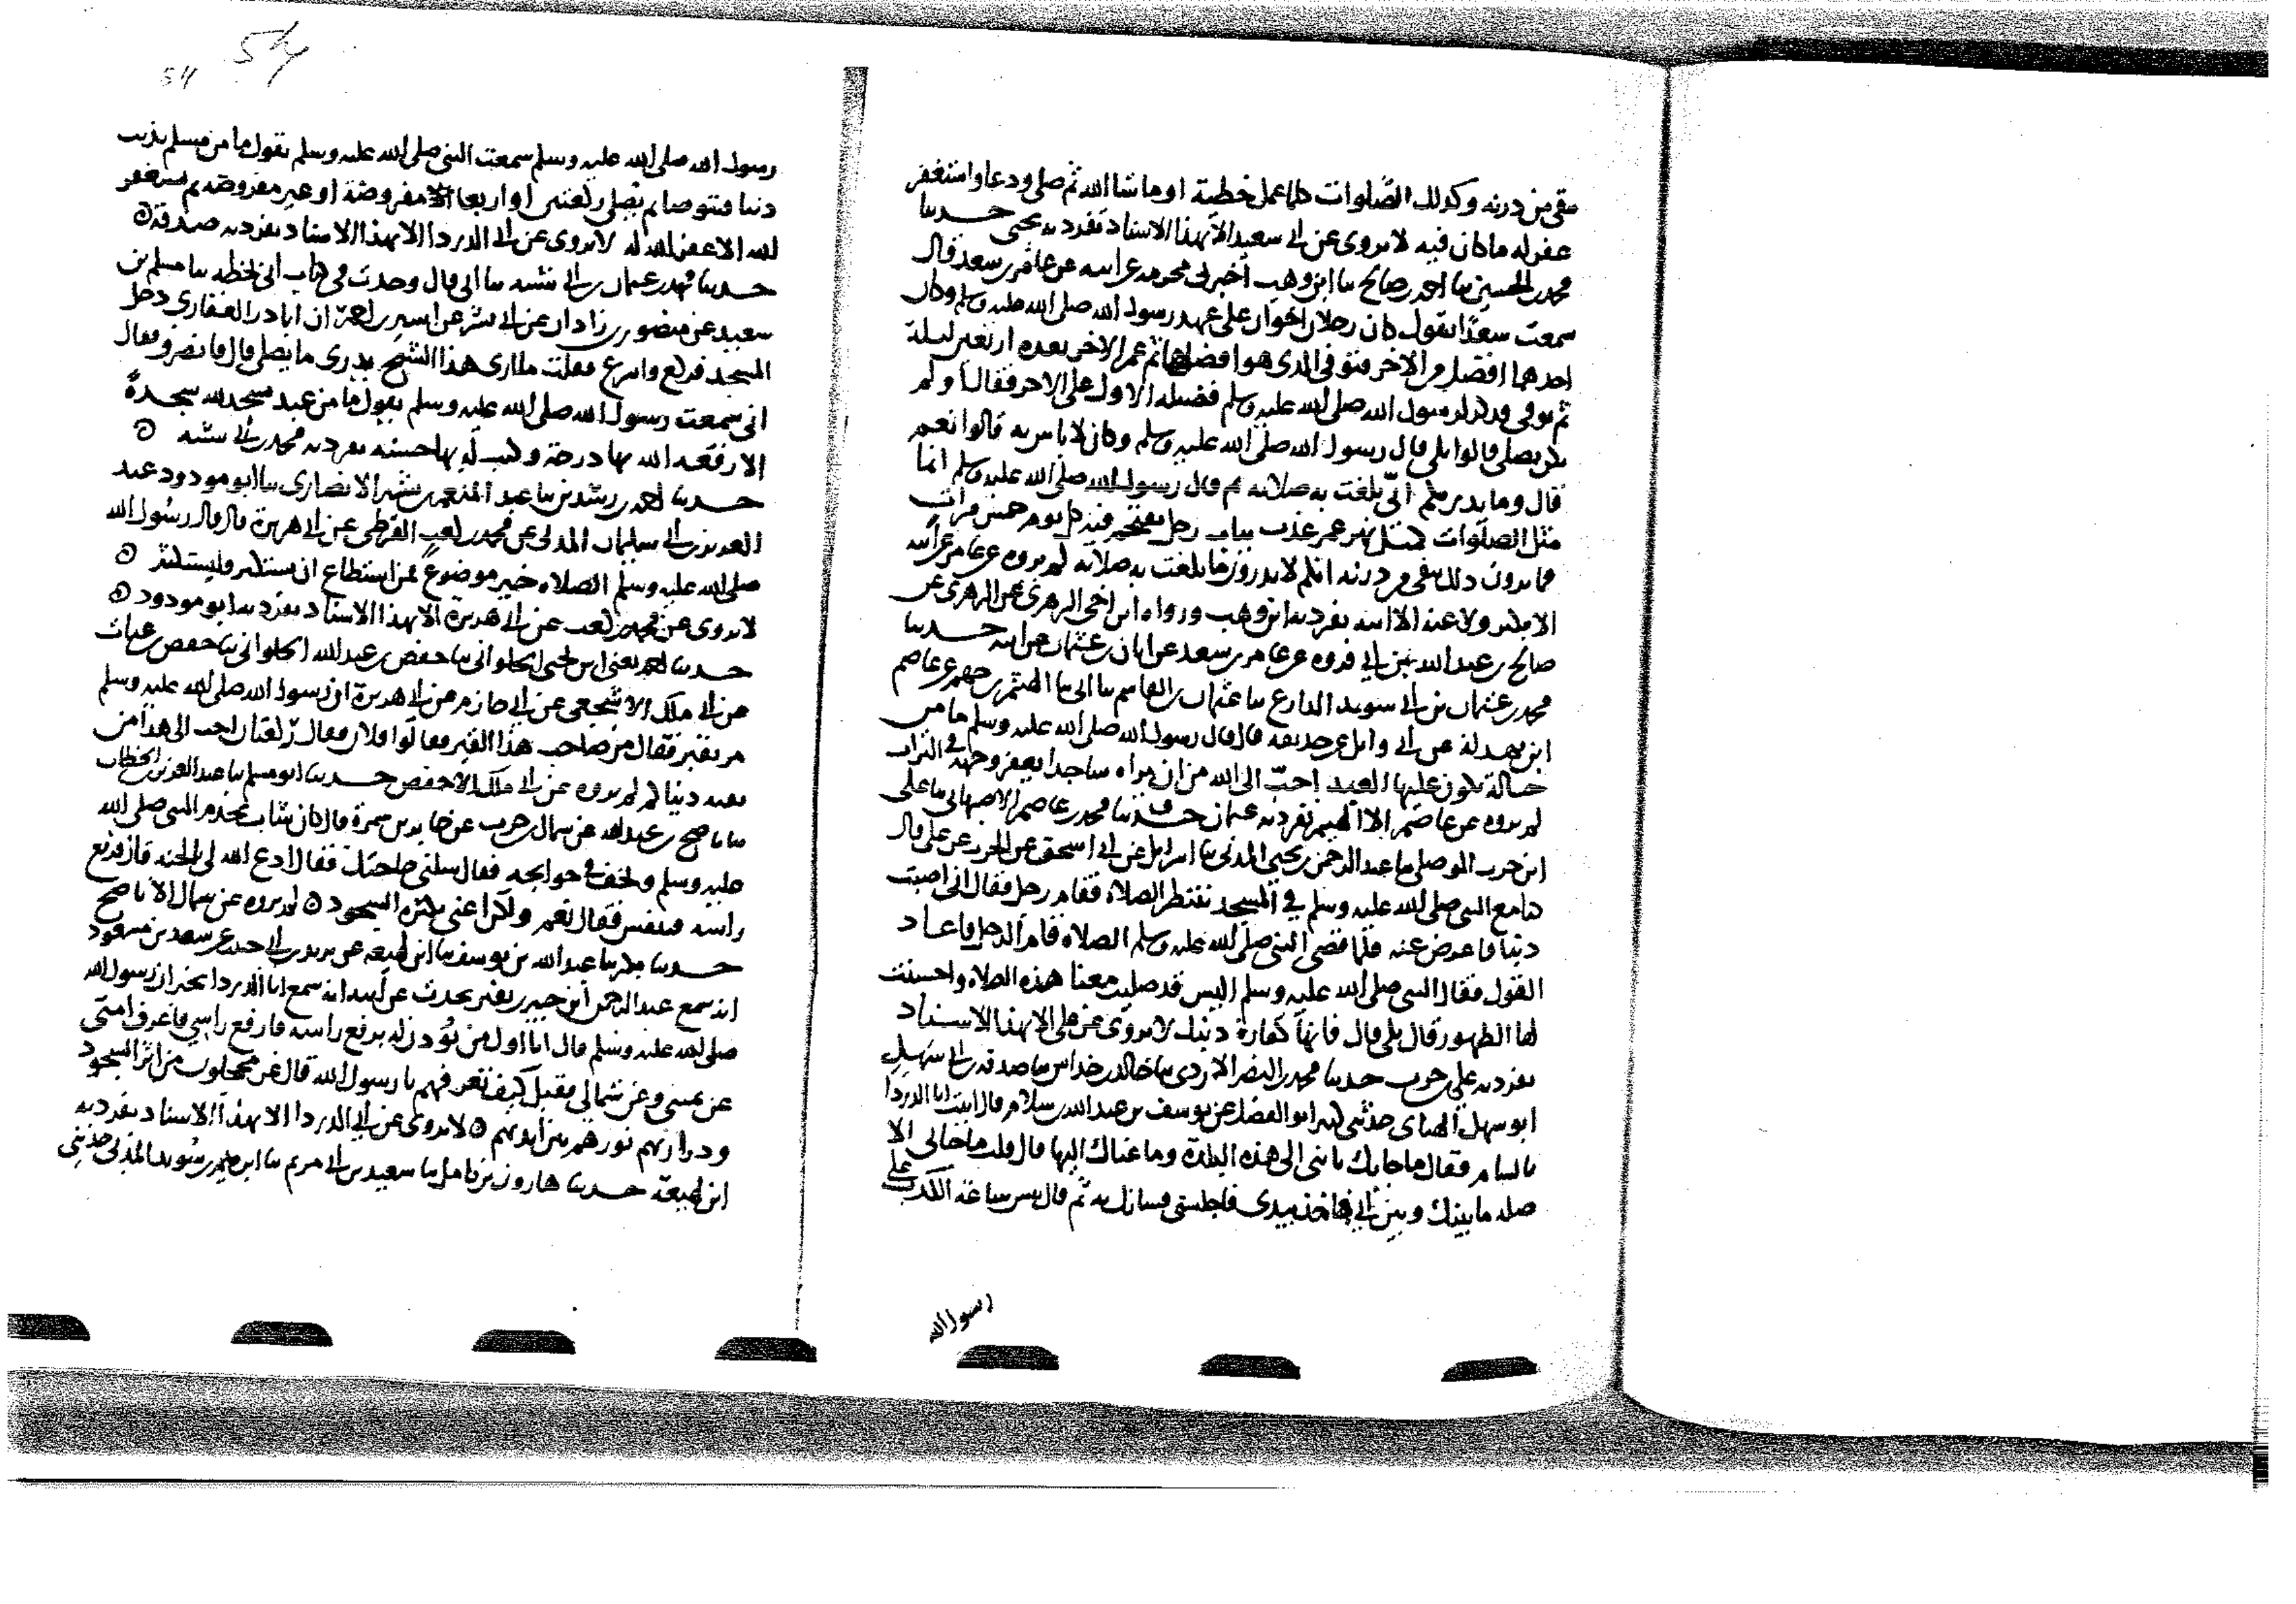 يبقى من درنه وكذلك الصلوات كلما عمل خطية او ما شا الله ثم صلى ودعا واستغفر
غفر له ما كان قبله لا يروى عن ابى سعيد الا بهذا الاسناد تفرد به يحيى حدثنا
محمد بن الحسين نا احمد بن صالح نا ابن وهب اخبرنى مخرمه عن ابيه عن عامر بن سعد قال
سمعت سعدا يقول كان رجلان اخوان على عهد رسول الله صلى الله عليه وسلم وكان
احدهما افضل من الاخر فتوفى الذى هو افضلهما ثم عمر الاخر بعده اربعين ليلة
ثم توفى فذكر لرسول الله صلى الله عليه وسلم فضيله الاول على الاخر فقال او لم
يكن يصلى قالوا بلى قال رسول الله صلى الله عليه وسلم وكان لا باس به قالوا نعم
قال وما يدريكم انى بلغت به صلاته ثم قال رسول الله صلى الله عليه وسلم انما
مثل الصلوات كمثل نهر غمر عذب بباب رجل يقتحم فيه كل يوم خمس مرات
فما ترون ذلك يبقى من درنه انكم لا تدرون ما بلغت به صلاته لم يروه عن عامر عن ابيه
الا بكير ولا عنه الا ابنه تفرد به ابن وهب ورواه ابن اخى الزهرى عن الزهرى عن
صالح بن عبد الله بن ابى فروه عن عامر بن سعد عن ابان بن عثمان عن ابيه حدثنا
محمد بن عثمان بن ابى سويد الذارع نا عثمان بن القاسم نا ابى نا الهيثم بن جهم عن عاصم
ابن بهدلة عن ابى وايل عن حذيفه قال قال رسول الله صلى الله عليه وسلم ما من
حالة يكون عليها العبد احب الى الله من ان يراه ساجدا يعفر وجهه فى التراب
لم يروه عن عاصم الا الهيثم تفرد به عثمان حدثنا محمد بن عاصم الاصبهانى نا على
ابن حرب الموصلى نا عبد الرحمن بن يحيى المدنى نا اسرايل عن ابى اسحق عن الحرث عن على قال
كنا مع النبى صلى الله عليه وسلم فى المسجد ننتظر الصلاة فقام رجل فقال انى اصبت
ذنبا فاعرض عنه فلما قضى النبى صلى الله عليه وسلم الصلاه قام الرجل فاعاد
القول فقال النبى صلى الله عليه وسلم اليس قد صليت معنا هذه الصلاه واحسنت
لها الطهور قال بلى قال فانها كفارة ذنبك لا يروى عن على الا بهذا الاسناد
تفرد به على بن حرب حدثنا محمد بن النضر الازدى نا خالد بن خداش نا صدقه بن ابى سهيل
ابو سهل الهناى حدثنى كثير ابو الفضل عن يوسف بن عبد الله بن سلام قال اتيت ابا الدردا
بالشام فقال ما جا بك يا بنى الى هذه البلدة وما عناك اليها قال قلت ما جا بى الا
صله ما بينك وبين ابى فاخذ بيدى فاجلسنى فساندته ثم قال بيس ساعة الكذب على
رسول الله
54
54
رسول الله صلى الله عليه وسلم سمعت النبى صلى الله عليه وسلم يقول ما من مسلم يذنب
ذنبا فيتوضا ثم يصلى ركعتين او اربعا مفروضة او غير مفروضه ثم يستغفر
الله الا غفر الله له لا يروى عن ابى الدردا الا بهذا الاسناد تفرد به صدقة
حدثنا محمد بن عثمان بن ابى شيبه نا ابى قال وجدت فى كتاب ابى بخطه نا مسلم بن
سعيد عن منصور بن زاذان عن ابى بشر عن ان اباذر الغفارى دخل
المسجد فركع واسرع فقلت ما ارى هذا الشيخ يدرى ما يصلى قال فانصرف فقال
انى سمعت رسول الله صلى الله عليه وسلم يقول ما من عبد يسجد لله سجدة
الا رفعه الله بها درجة وكتب له بها حسنه تفرد به محمد بن ابى شيبه
حدثنا احمد بن رشدين نا عبد المنعم بن بشير الانصارى نا ابو مودود عبد
العزيز بن ابى سليمان المدنى عن محمد بن كعب القرظى عن ابى هريرة قال قال رسول الله
صلى الله عليه وسلم الصلاه خير موضوع فمن استطاع ان يستكثر فليستكثر
لا يروى عن محمد بن كعب عن ابى هريرة الا بهذا الاسناد تفرد به ابو مودود
حدثنا احمد يعنى ابن يحيى الحلوانى نا حفص بن عبد الله الحلوانى نا حفص بن غياث
عن ابى ملك الاشجعى عن ابى حازم عن ابى هريرة ان رسول الله صلى الله عليه وسلم
مر بقبر فقال من صاحب هذا القبر فقالوا فلان فقال ركعتان احب الى هذا من
بقيه دنياكم لم يروه عن ابى ملك الا حفص حدثنا ابو مسلم نا عبد العزيز بن الخطاب
نا ناصح بن عبد الله عن سماك بن حرب عن جابر بن سمرة قال كان شاب يخدم النبى صلى الله
عليه وسلم ويخف فى حوايجه فقال سلنى حاجتك فقال ادع الله لى بالجنه قال فرفع
راسه فتنفس فقال نعم ولكن اعنى بكثره السجود لم يروه عن سماك الا ناصح
حدثنا بكر نا عبد الله بن يوسف نا ابن لهيعه عن يزيد بن ابى حبيب عن سعد بن مسعود
انه سمع عبد الرحمن ابن جبير بن نفير يحدث عن ابيه انه سمع ابا الدردا يخبر ان رسول الله
صلى الله عليه وسلم قال انا اول من يؤذن له برفع راسه فارفع راسى فاعرف امتى
عن يمينى وعن شمالى فقيل كيف تعرفهم يا رسول الله قال غر محجلون من اثر السجود
وذراريهم نورهم بين ايديهم لا يروى عن ابى الدردا الا بهذا الاسناد تفرد به
ابن لهيعة حدثنا هارون بن كامل نا سعيد بن ابى مريم نا ابرهيم بن سويد المدنى حدثنى